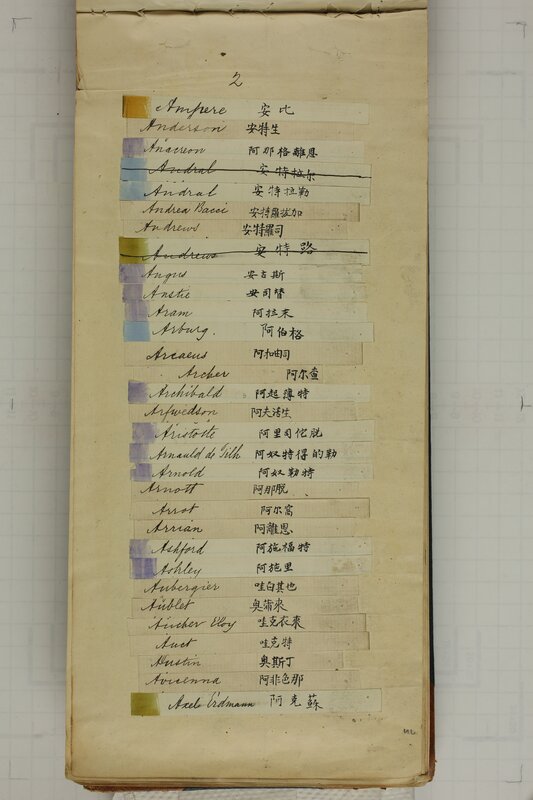 2
Ampere 安比
Anderson 安特生
Anacreon 阿那格離恩
Andral 安特拉尔
Andral 安特拉勒
Andrea Bacci 安特羅拔加
Andrews 安特羅司
Andrews 安特路
Angus 安古斯
Anstie 安司替
Aram 阿拉末
Arburg. 阿伯格
Arcaeus 阿和由司
Archer 阿尔查
Archibald 阿起薄特
Arfwedson 阿夫活生
Aristotte 阿里司佗脱
Arnauld de Tilh 阿奴特得的勒
Arnold 阿奴勒特
Arnott 阿那脱
Arrot 阿尔窩
Arrian 阿離恩
Ashford 阿施福特
Ashley 阿施里
Aubergier 哇白其也
Aublet 奥蒲來
Aucher Eloy 哇克衣來
Auct 哇克特
Austin 奥斯丁
Avicenna 阿非色那
Axel Erdmann 阿克蘇